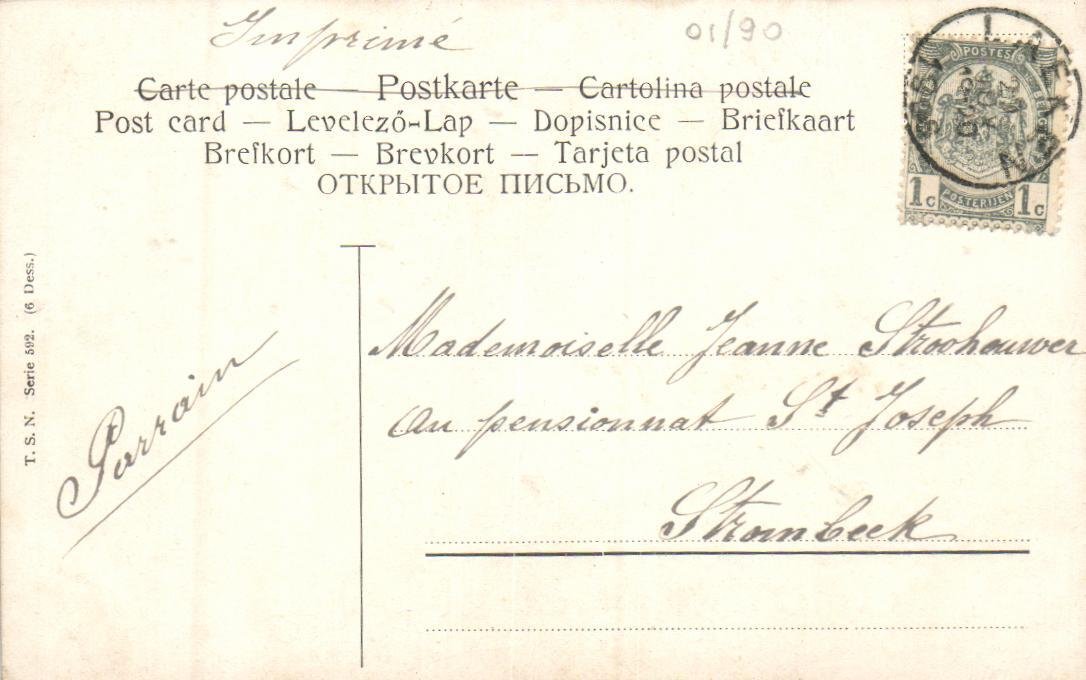 Imprimé
01/90
Carte postale — Postkarte — Cartolina postale
Post card — Levelező-Lap — Dopisnice — Briefkaart
Brefkort — Brevkort — Tarjeta postal
ОТКРЫТОЕ ПИСЬМО.
POSTES
1c POSTERIJEN 1c
T. S. N. Serie 592. (6 Dess.)
Parrain
Mademoiselle Jeanne Stroohouwer
au pensionnat St Joseph
Strombeek